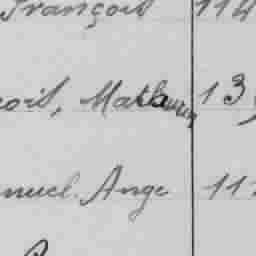 François 114
çois, Mathurin 139
nuel. Ange 11